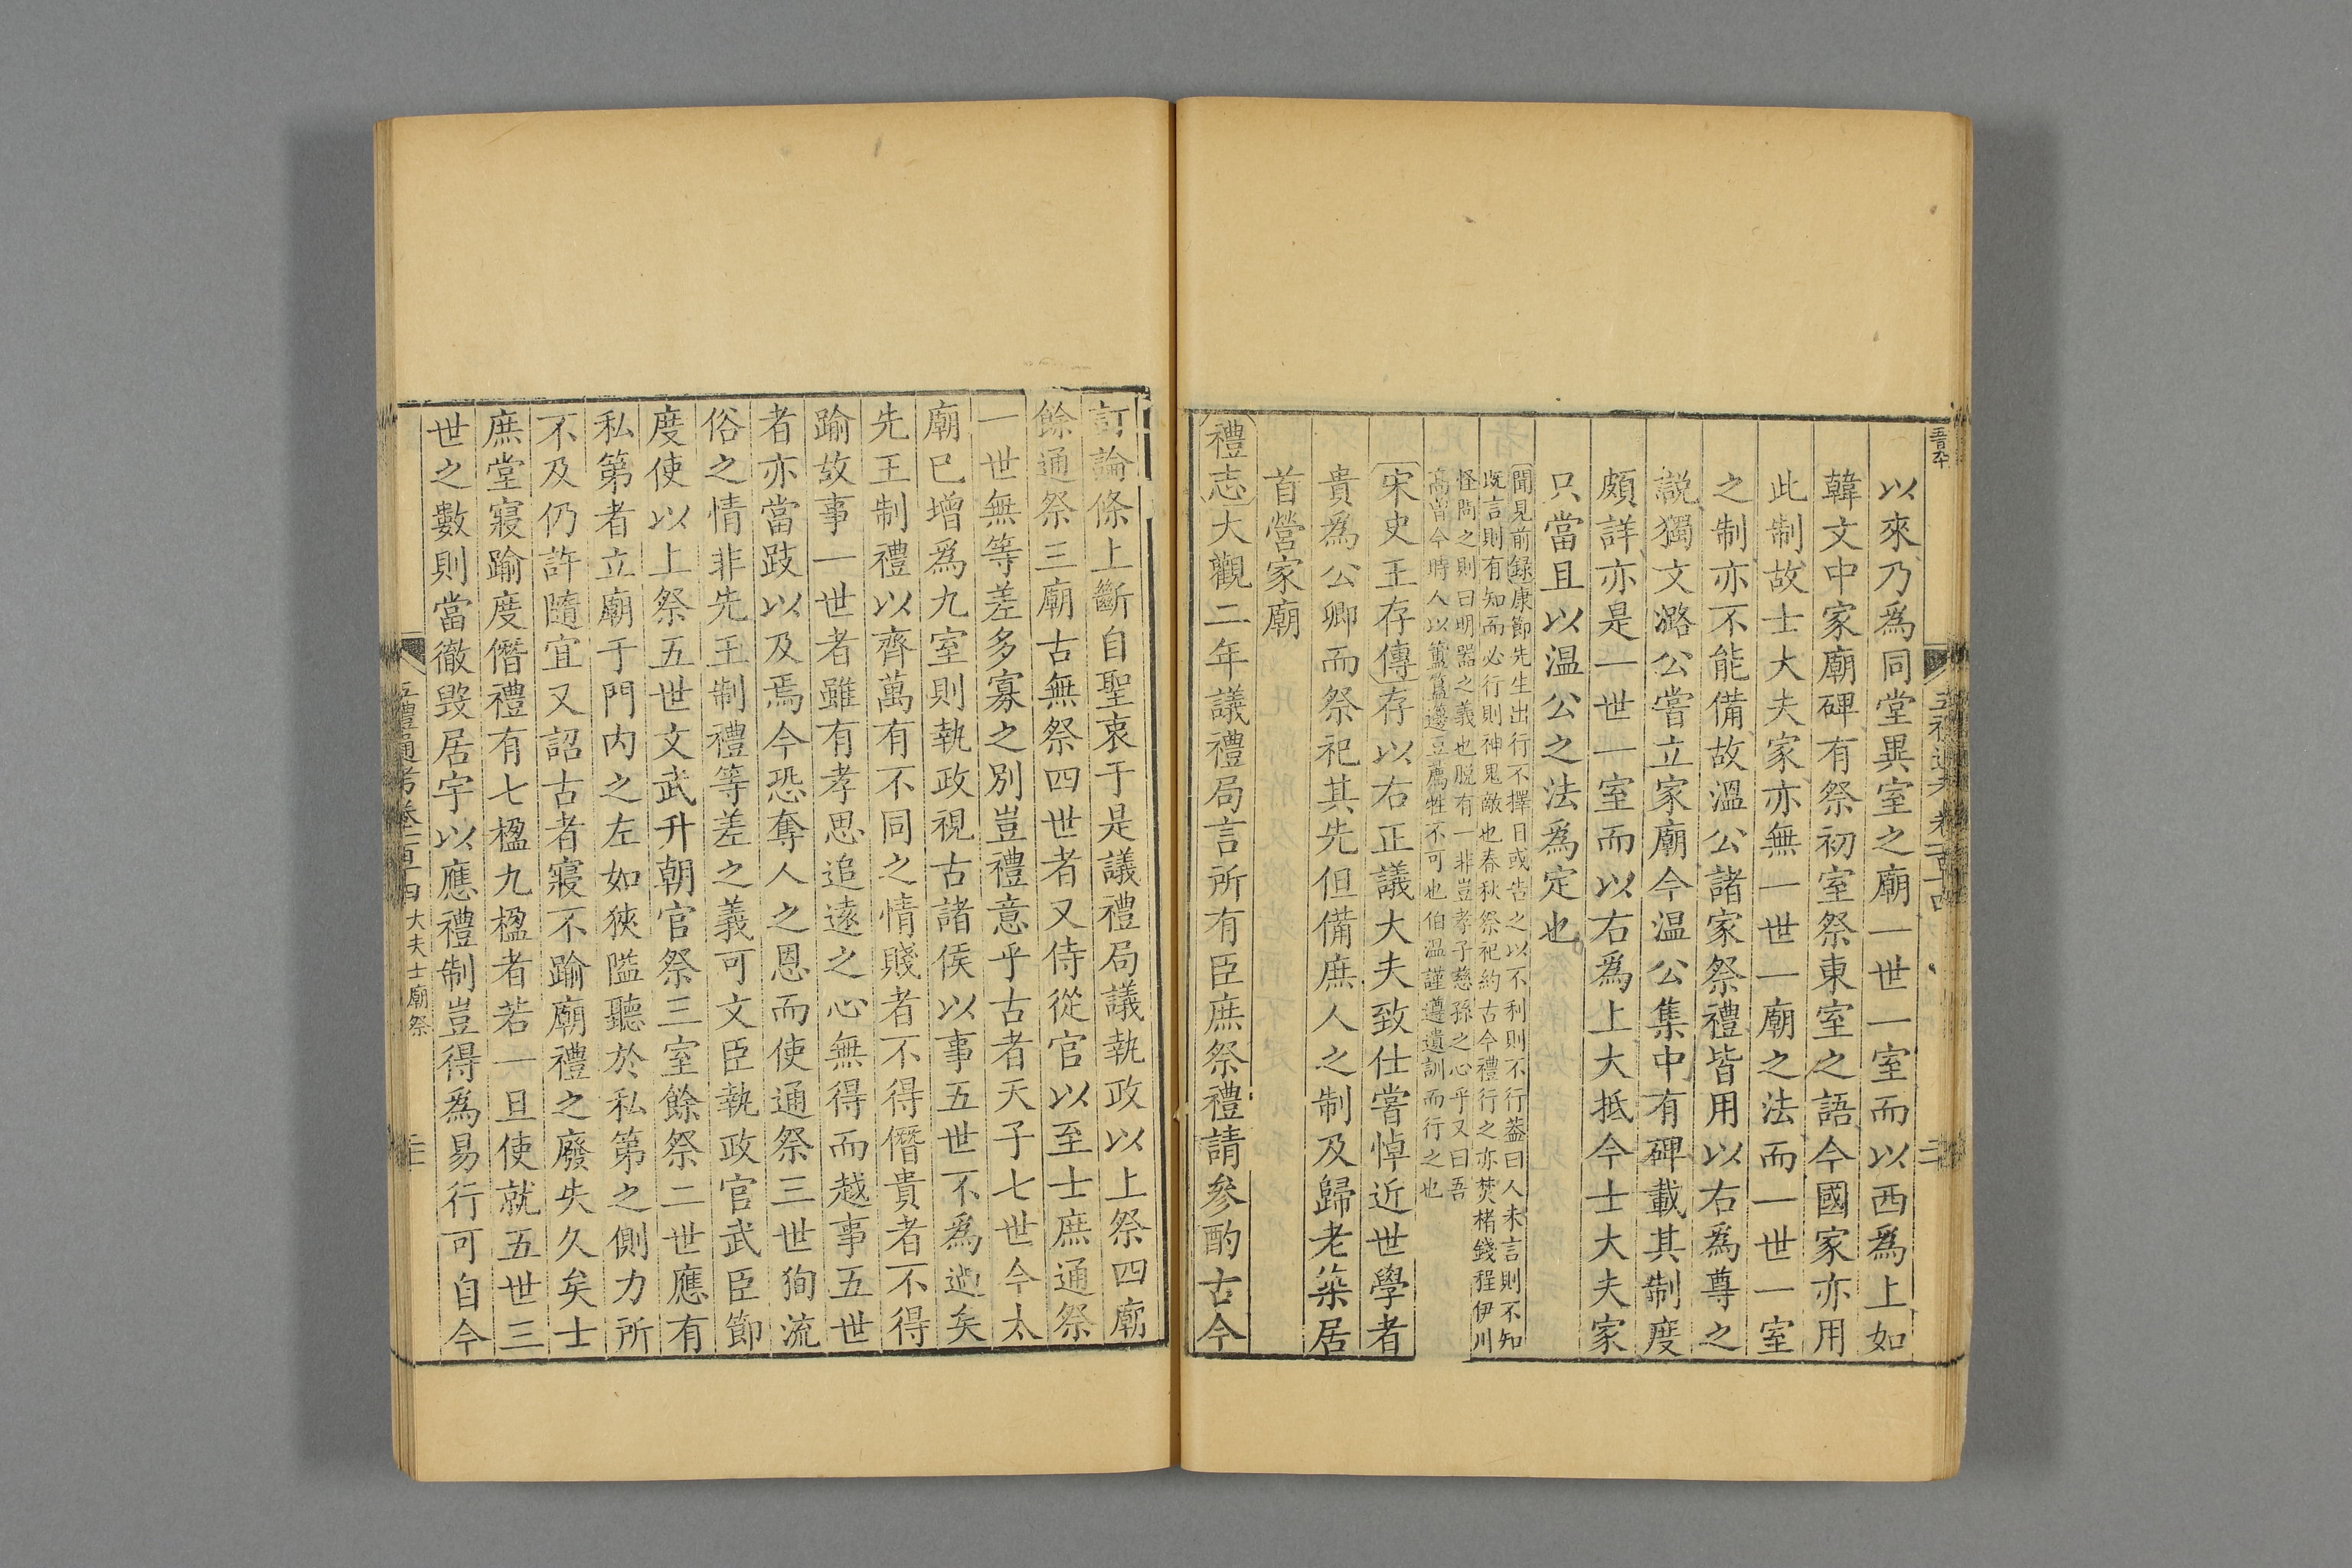 以來乃爲同堂異室之廟一世一室而以西爲上如
韓文中家廟碑有祭初室祭東室之語今國家亦用
此制故士大夫家亦無一世一廟之法而一世一室
之制亦不能備故溫公諸家祭禮皆用以右爲尊之
説獨文潞公嘗立家廟今温公集中有碑載其制度
頗詳亦是一世一室而以右爲上大抵今士大夫家
只當且以温公之法爲定也
聞見前録康節先生出行不擇日或告之以不利則不行葢曰人未言則不知
既言則有知而必行則神鬼敵也春秋祭祀約古今禮行之亦焚楮錢程伊川
怪問之則曰明器之義也脱有一非豈孝子慈孫之心乎又曰吾
高曾今時人以簠簋籩豆薦牲不可也伯温謹遵遺訓而行之也
宋史王存傳存以右正議大夫致仕嘗悼近世學者
貴爲公卿而祭祀其先但備庶人之制及歸老築居
首營家廟
禮志大觀二年議禮局言所有臣庶祭禮請參酌古今
訂論條上斷自聖衷于是議禮局議執政以上祭四廟
餘通祭三廟古無祭四世者又侍從官以至士庶通祭
一世無等差多寡之別豈禮意乎古者天子七世今太
廟已增爲九室則執政視古諸侯以事五世不爲過矣
先王制禮以齊萬有不同之情賤者不得僭貴者不得
踰故事一世者雖有孝思追遠之心無得而越事五世
者亦當跂以及焉今恐奪人之恩而使通祭三世狥流
俗之情非先王制禮等差之義可文臣執政官武臣節
度使以上祭五世文武升朝官祭三室餘祭二世應有
私第者立廟于門内之左如狹隘聽於私第之側力所
不及仍許隨宜又詔古者寢不踰廟禮之廢失久矣士
庶堂寢踰度僭禮有七楹九楹者若一旦使就五世三
世之數則當徹毀居宇以應禮制豈得爲易行可自今
五禮通考卷一百十四 大夫士廟祭